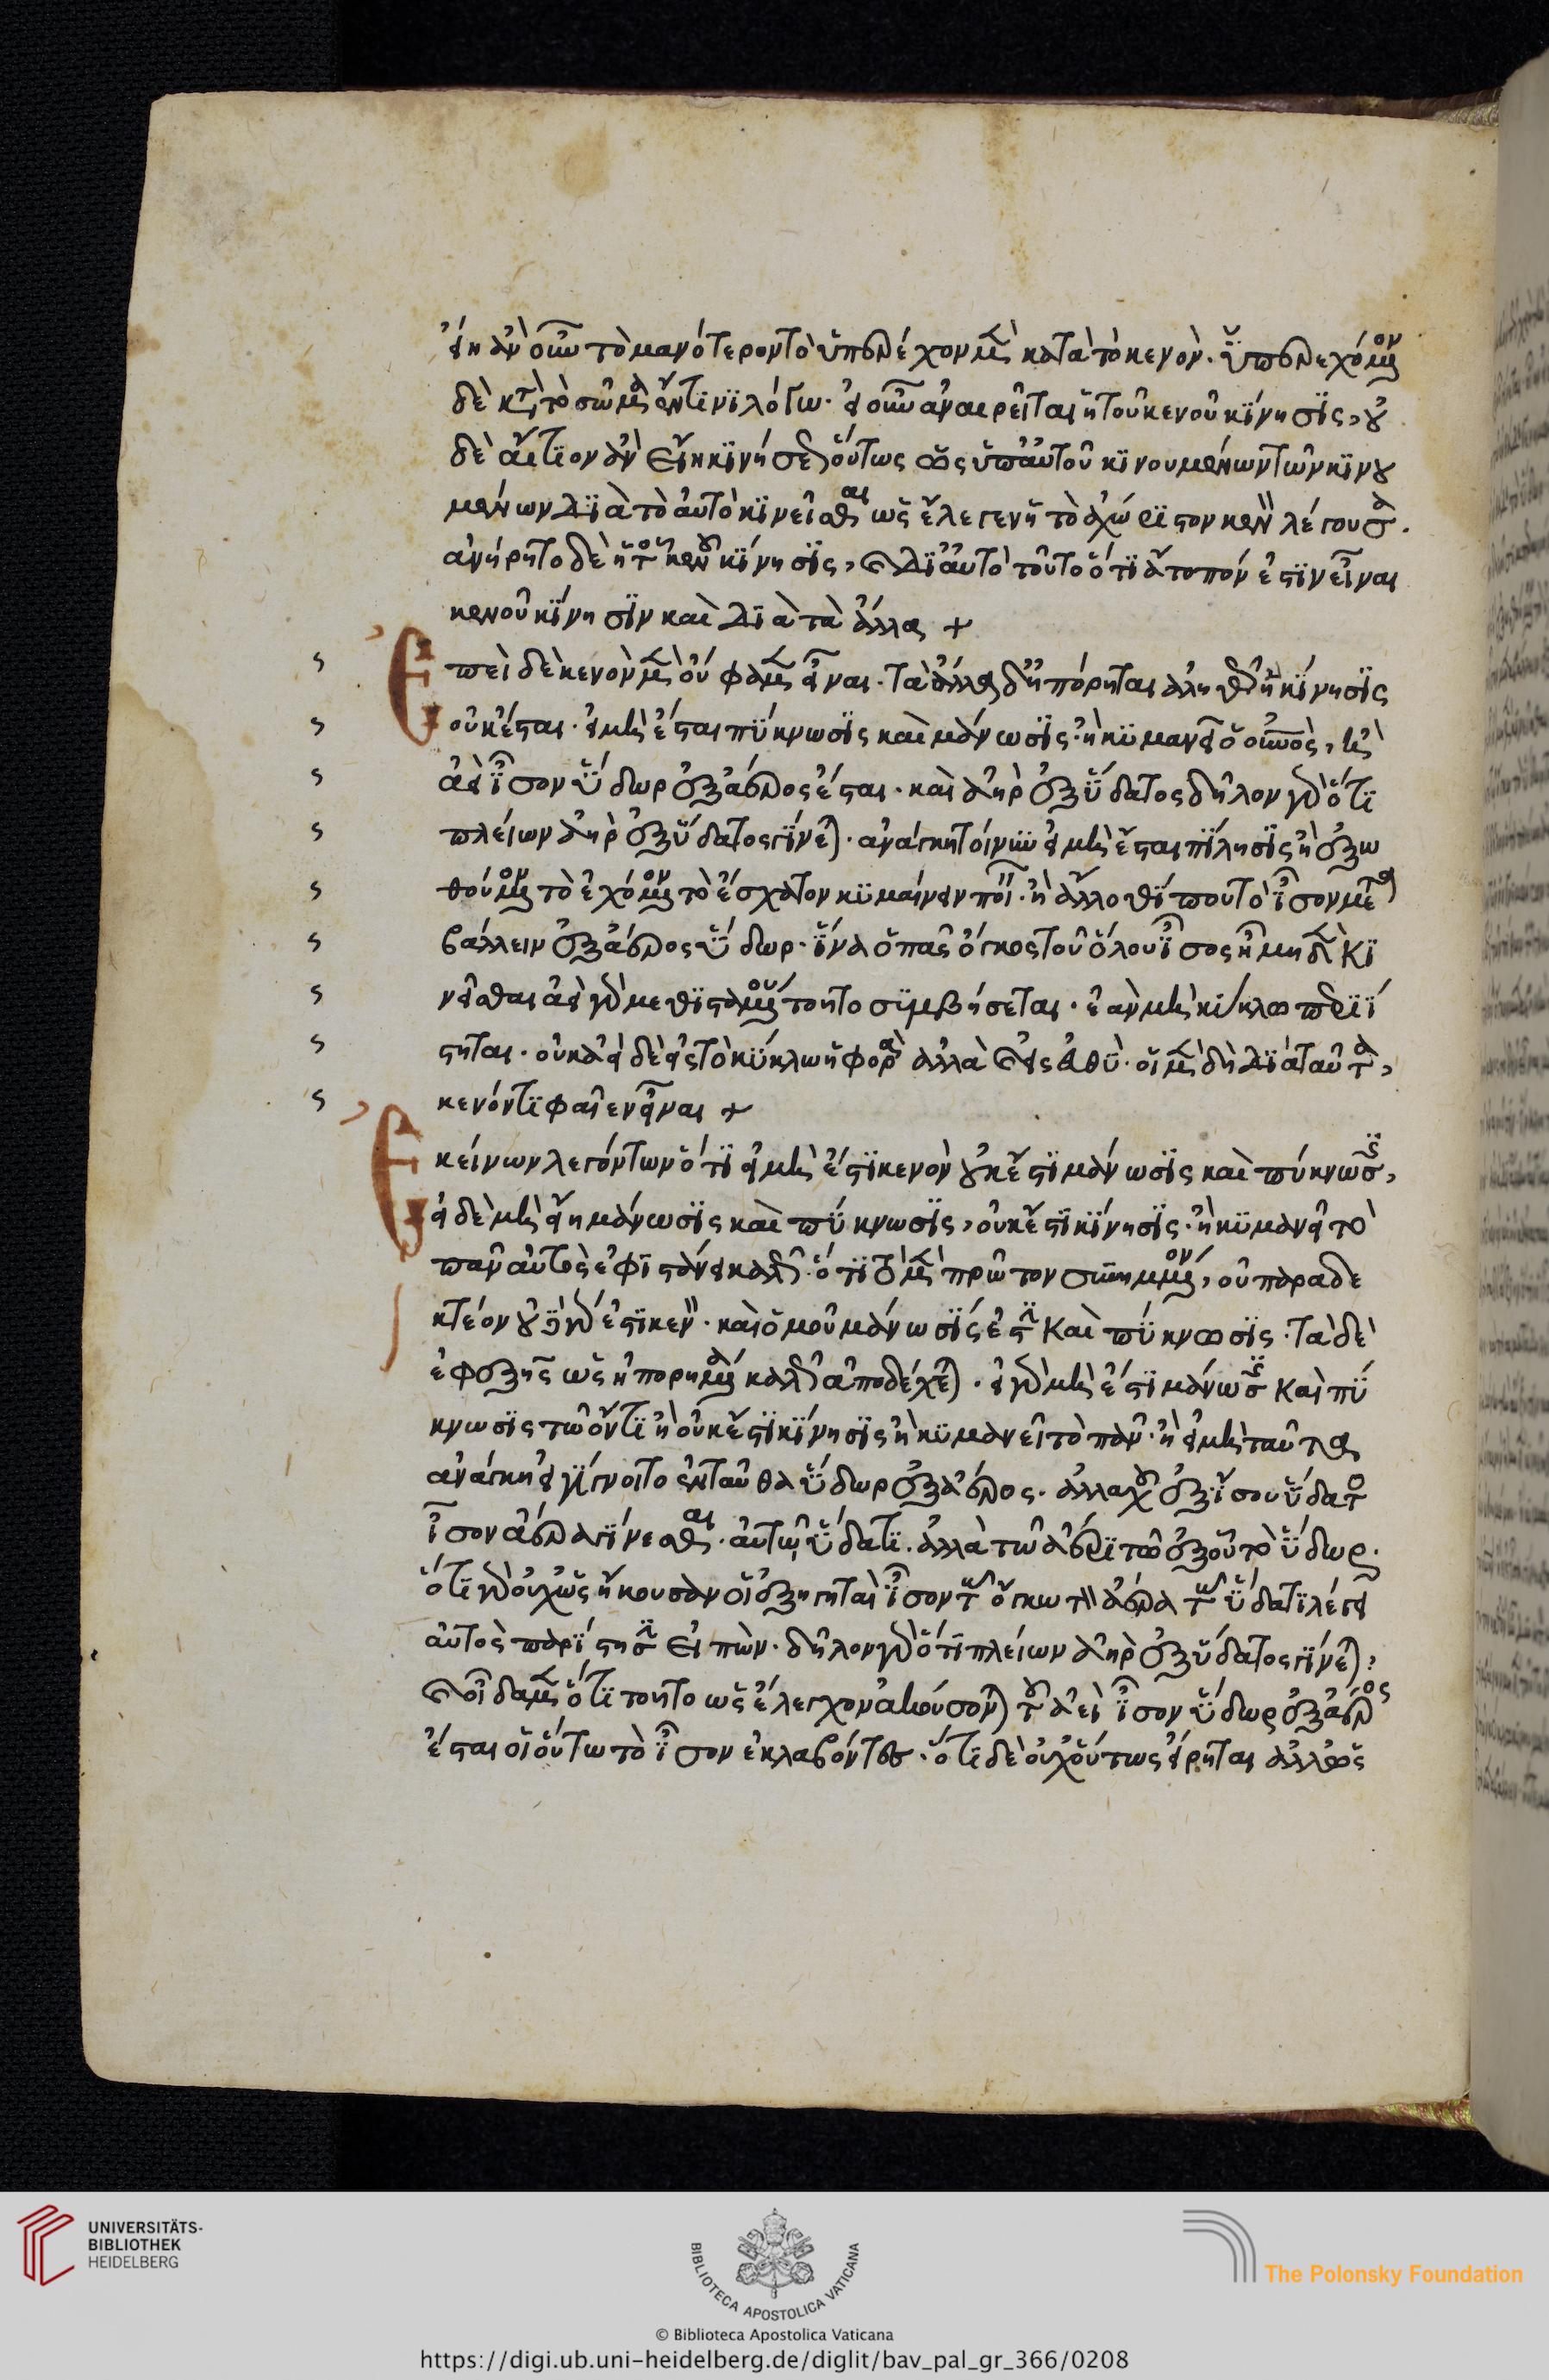 εἴη ἂν οὖν τὸ μανότερον τὸ ὑπερέχον μὲν κατὰ τὸ κενὸν. ὑπερεχόμενον
δὲ κατὰ τὸ σῶμα ἔν τινι λόγω. εἰ οὖν ἀναιρεῖται ἡ τοῦ κενοῦ κίνησις, οὐ
δὲ αἴτιον ἂν εἴη κινήσεως οὕτως ὡς ὑπ' αὐτοῦ κινουμένων τῶν κινου
μένων διὰ τὸ αὐτὸ κινεῖσθαι ὡς ἔλεγεν ἢ τὸ ἀχώριστον κενὸν λέγουσα.
ἀνήρητο δὲ ἡ τοῦ κενοῦ κίνησις, καὶ δι' αὐτὸ τοῦτο ὅτι ἄτοπόν ἐστιν εἶναι
κενοῦ κίνησιν καὶ διὰ τὰ ἄλλα +
Ἐπεὶ δὲ κενὸν μὲν οὔ φαμεν εἶναι. τὰ ἄλλα δ' ἠπόρηται ἀληθῶς ἢ κίνησις
οὐκ ἔσται. εἰ μὴ ἔσται πύκνωσις καὶ μάνωσις. ἢ κυμανεῖ ὁ οὐρανὸς, ἢ
ἀεὶ ἴσον ὕδωρ ἐξ ἀέρος ἔσται. καὶ ἀὴρ ἐξ ὕδατος δῆλον γὰρ ὅτι
πλείων ἀὴρ ἐξ ὕδατος γίνεται. ἀνάγκη τοίνυν εἰ μὴ ἔσται πίλησις ἢ ἐξω
θούμενον τὸ ἐχόμενον τὸ ἔσχατον κυμαίνειν ποιεῖ. ἢ ἄλλοθί που τὸ ἴσον μετα
βάλλειν ἐξ ἀέρος ὕδωρ. ἵνα ὁ πᾶς ὄγκος τοῦ ὅλου ἴσος ἦ μηδὲν κι
νεῖσθαι ἀεὶ γὰρ μεθισταμένου τοῦτο συμβήσεται. ἐὰν μὴ κύκλω περιί
στηται. οὐκ ἀεὶ δὲ εἰς τὸ κύκλω ἡ φορὰ ἀλλὰ καὶ εἰς εὐθύ. οἱ μὲν δὴ διὰ ταῦτα,
κενόν τι φαῖεν εἶναι +
Ἐκείνων λεγόντων ὅτι εἰ μὴ ἔστι κενὸν οὐκ ἔστι μάνωσις καὶ πύκνωσις,
εἰ δὲ μὴ εἴη μάνωσις καὶ πύκνωσις, οὐκ ἔστι κίνησις. ἢ κυμανεῖ τὸ
πᾶν αὐτὸς ἐφιστάνει καλῶς. ὅτι τὸ μὲν πρῶτον συνημμένον, οὐ παραδε
κτέον οὐ γάρ ἐστι κενὸν. καὶ ὅμου μάνωσίς ἐστι καὶ πύκνωσις. τὰ δὲ
ἐφεξῆς ὡς ἠπορημένα καλῶς ἀποδέχεται. εἰ γὰρ μὴ ἔστι μάνωσις καὶ πύ
κνωσις τῶ ὄντι ἢ οὐκ ἔστι κίνησις ἢ κυμανεῖ τὸ πᾶν. ἢ εἰ μὴ ταῦτα
ἀνάγκη εἰ γίγνοιτο ἐνταῦθα ὕδωρ ἐξ ἀέρος. ἀλλαχοῦ ἐξ ἴσου ὕδατος
ἴσον ἀέρα γίνεσθαι. αὐτῶ ὕδατι. ἀλλὰ τῶ ἀέρι τῶ ἐξ οὗ τὸ ὕδωρ.
ὅτι γὰρ οὐχ ὡς ἤκουσαν οἱ ἐξηγηταὶ ἴσον τῶ ὄγκω τὸν ἀέρα τῶ ὕδατι λέγει
αὐτὸς παρίστησιν εἰπὼν. δῆλον γὰρ ὅτι πλείων ἀὴρ ἐξ ὕδατος γίνεται,
καὶ οἶδα μὲν ὅτι τοῦτο ὡς ἔλεγχον ἀκούσονται τοῦ ἀεὶ ἴσον ὕδωρ ἐξ ἀέρος
ἔσται οἱ οὕτω τὸ ἴσον ἐκλαβόντες. ὅτι δὲ οὐχ οὕτως εἴρηται ἀλλ' ὡς
UNIVERSITÄTS-
BIBLIOTHEK
HEIDELBERG
BIBLIOTECA APOSTOLICA VATICANA
The Polonsky Foundation
© Biblioteca Apostolica Vaticana
https://digi.ub.uni-heidelberg.de/diglit/bav_pal_gr_366/0208